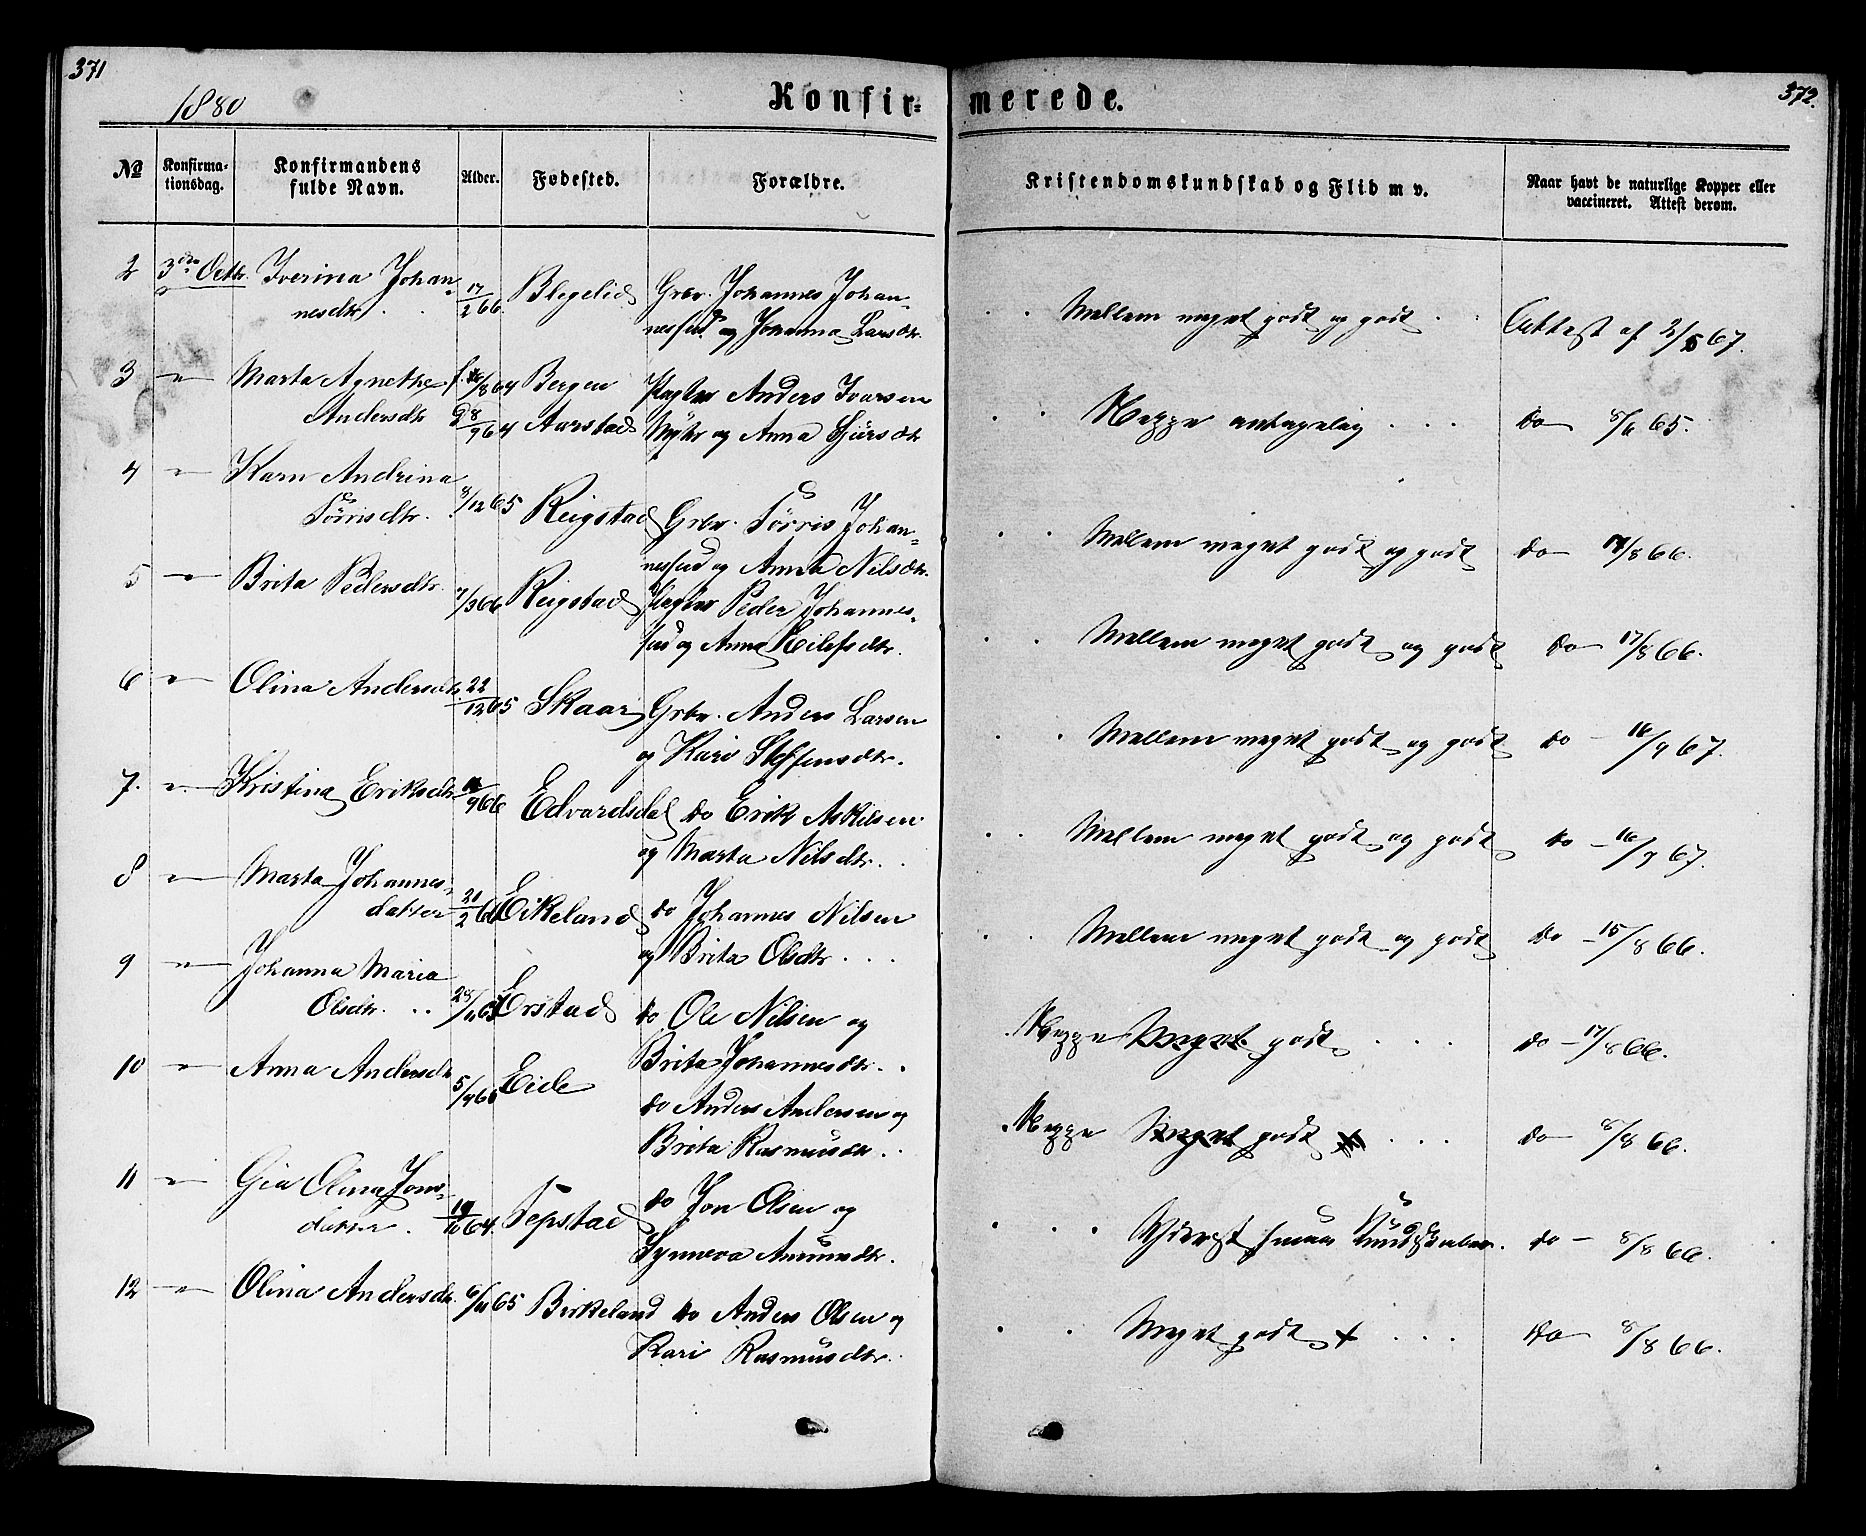 371
1880
Konfir-
merede.
372.
No
Konfirma-
tionsdag.
Konfirmandens
fulde Navn.
Alder.
Fødested.
Forældre.
Kristendomskundskab og Flid m v.
Naar havt de naturlige Kopper eller
vaccineret. Attest derom.
2 3die Octbr. Iverina Johan- 17/2 66. Blegelid Grbr. Johannes Johan- Mellem meget godt og godt Attest af 2/6 67.
nesdtr. nessen og Johanna Larsdtr.
3 " Marta Agnethe f. /8 64 Bergen Pagter Anders Ivarsen Neppe antagelig do 8/6 65.
Andersdtr 9 8/9 64 Aarstad og Anna Sjursdtr
4 " Karn Andrina 8/12 65 Reigstad Grbr. Törris Johan- Mellem meget godt og godt do 17/8 66.
Törrisdtr. nessen og Anna Nilsdtr.
5 " Brita Pedersdtr. 7/3 66 Reigstad Pagter Peder Johannes- Mellem meget godt og godt do 17/8 66.
sen og Anna
6 " Olina Andersdtr 22/12 65 Skaar Grbr. Anders Larsen Mellem meget godt og godt do 16/9 67.
og Kari Steffensdtr.
7. " Kristina Eriksdtr /9 66 Edvardsdal do Erik Askilsen Mellem meget godt og godt do 16/9 67.
og Marta Nilsdtr.
8 " Marta Johannes- 21/2 66 Eikeland do Johannes Nilsen Mellem meget godt og godt do 15/8 66.
datter og Brita Olsdtr.
9 " Johanna Maria Erstad do Ole Nilsen og Neppe Meget godt do 17/8 66.
Olsdtr. 28/11 65 Brita Johannesdtr.
10 " Anna Andersdtr 5/4 66 Eide do Anders Andersen og Neppe Meget godt do 8/8 66.
Brita Rasmusdtr.
11 " Gia Olina Jons- 19/10 64. Tepstad do Jon Olsen og Yderst smaa Kundskaber. do 8/8 66.
datter. Synneva Amundtr.
12 " Olina Andersdtr. 6/11 65 Birkeland do Anders Olsen og Meget godt do 8/8 66.
Kari Rasmusdtr.